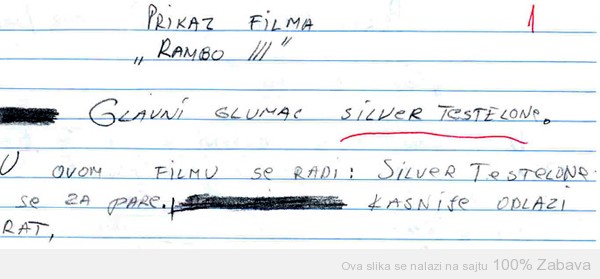 PRIKAZ FILMA
„RAMBO III"
1
GLAVNI GLUMAC SILVER TESTELONE.
U OVOM FILMU SE RADI: SILVER TESTELONE
SE ZA PARE. KASNIJE ODLAZI
RAT,
Ova slika se nalazi na sajtu 100% Zabava